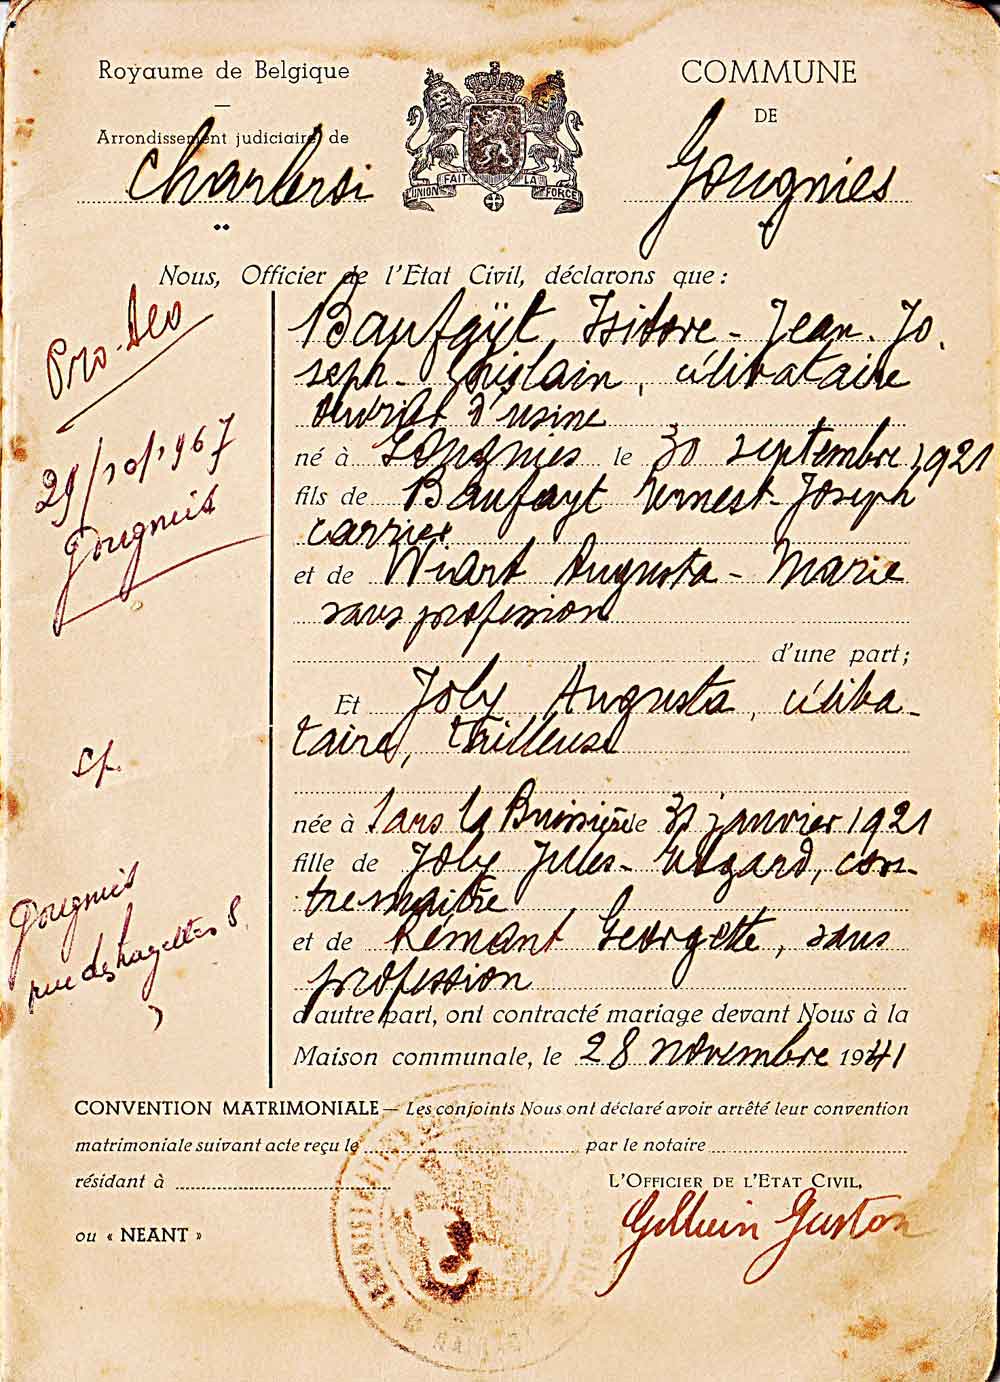 Royaume de Belgique
COMMUNE
DE
Arrondissement judiciaire de
Charleroi
Gougnies
L'UNION FAIT LA FORCE
Nous, Officier de l'Etat Civil, déclarons que :
Baufaÿt, Isidore - Jean - Jo
seph - Ghislain, célibataire
ouvrier d'usine
né à Gougnies le 30 septembre 1921
fils de Baufayt Ernest - Joseph
carrier
et de Wiart Augusta - Marie
sans profession
d'une part ;
Et Joly Augusta, céliba-
taire, tailleuse
née à Sars la Buissière le 31 janvier 1921
fille de Joly Jules - , con-
tremaître
et de Remant Georgette, sans
profession
d'autre part, ont contracté mariage devant Nous à la
Maison communale, le 28 novembre 1941
Pro-Deo
29/10/1967
Gougnies
Gougnies
rue des 8
CONVENTION MATRIMONIALE — Les conjoints Nous ont déclaré avoir arrêté leur convention
matrimoniale suivant acte reçu le par le notaire
résidant à
L'OFFICIER DE L'ETAT CIVIL,
ou « NEANT »
Gaston